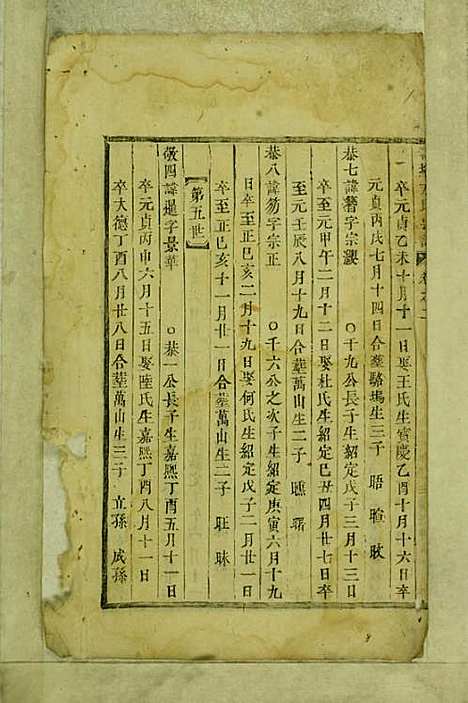 卒元貞乙未十月十一日娶王氏生寶慶乙酉十月十六日卒
元貞丙戌七月十四日合葬駱塢生三子 晤 暄 畋
恭七諱簪字宗 〇千九公長子生紹定戊子三月十三日
卒至元甲午二月十二日娶杜氏生紹定己丑四月廿七日卒
至元壬辰八月十九日合葬萬山生二子 曙
恭八諱笏字宗正 〇千六公之次子生紹定庚寅六月十九
日卒至正巳亥二月十九日娶何氏生紹定戊子二月廿一日
卒至正巳亥十一月廿一日合葬萬山生二子 旺 昧
第五世
敬四諱暹字景華 〇恭一公長子生嘉熙丁酉五月十一日
卒元貞丙申六月十五日娶陸氏生嘉熙丁酉八月十一日
卒大德丁酉八月廿八日合葬萬山生二子 立孫 成孫